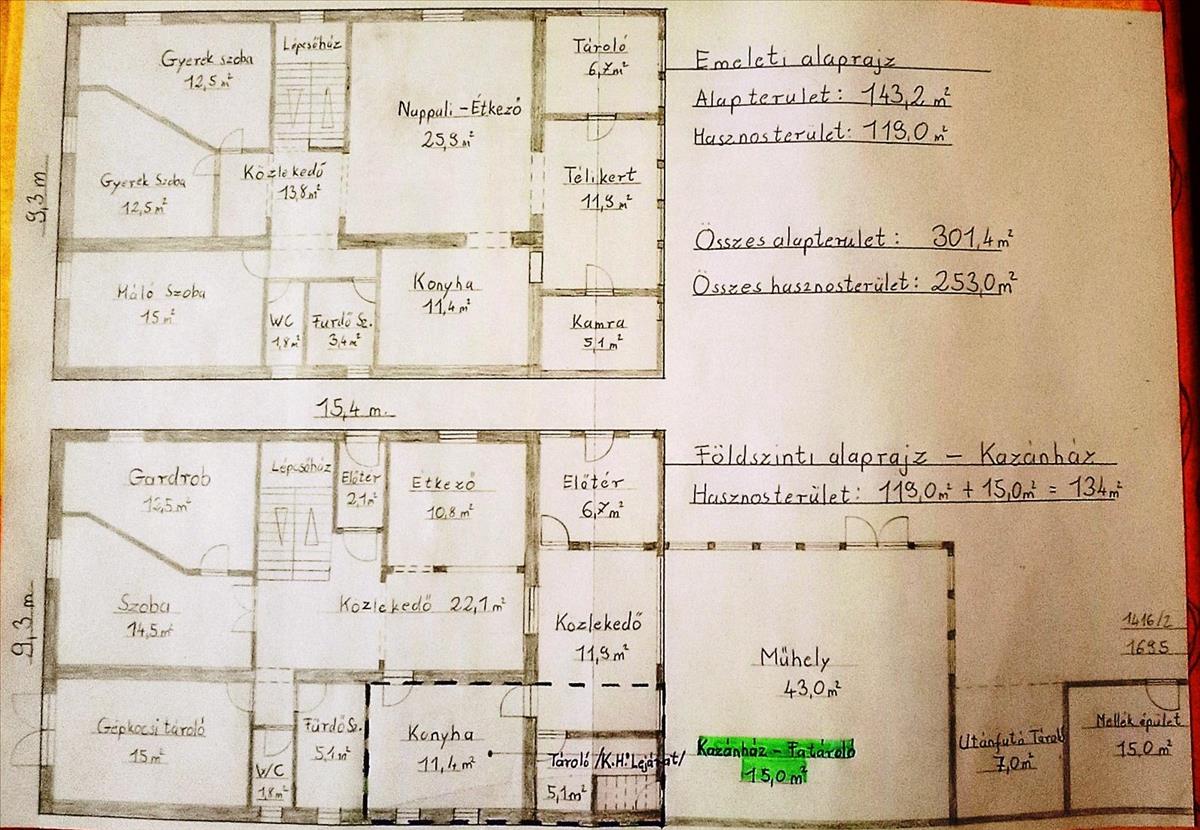 Gyerek szoba
12,5 m²
Lépcsőház
Nappali - Étkező
25,9 m²
Tároló
6,7 m²
Gyerek Szoba
12,5 m²
Közlekedő
13,8 m²
Télikert
11,9 m²
Háló Szoba
15 m²
WC
1,8 m²
Fürdő Sz.
3,4 m²
Konyha
11,4 m²
Kamra
5,1 m²
9,3 m
15,4 m.
Emeleti alaprajz
Alapterület: 143,2 m²
Hasznosterület: 119,0 m²
Összes alapterület: 301,4 m²
Összes hasznosterület: 253,0 m²
Földszinti alaprajz - Kazánház
Hasznosterület: 119,0 m² + 15,0 m² = 134 m²
Gardrob
12,5 m²
Lépcsőház
Előtér
2,1 m²
Étkező
10,8 m²
Előtér
6,7 m²
9,3 m
Szoba
14,5 m²
Közlekedő 22,1 m²
Közlekedő
11,9 m²
Műhely
43,0 m²
1416/2
1695
Gépkocsi tároló
15 m²
WC
1,8 m²
Fürdő Sz.
5,1 m²
Konyha
11,4 m²
Tároló /K.H. Lejárat/
5,1 m²
Kazánház - Fatároló
15,0 m²
Utánfutó Tároló
7,0 m²
Mellék épület
15,0 m²